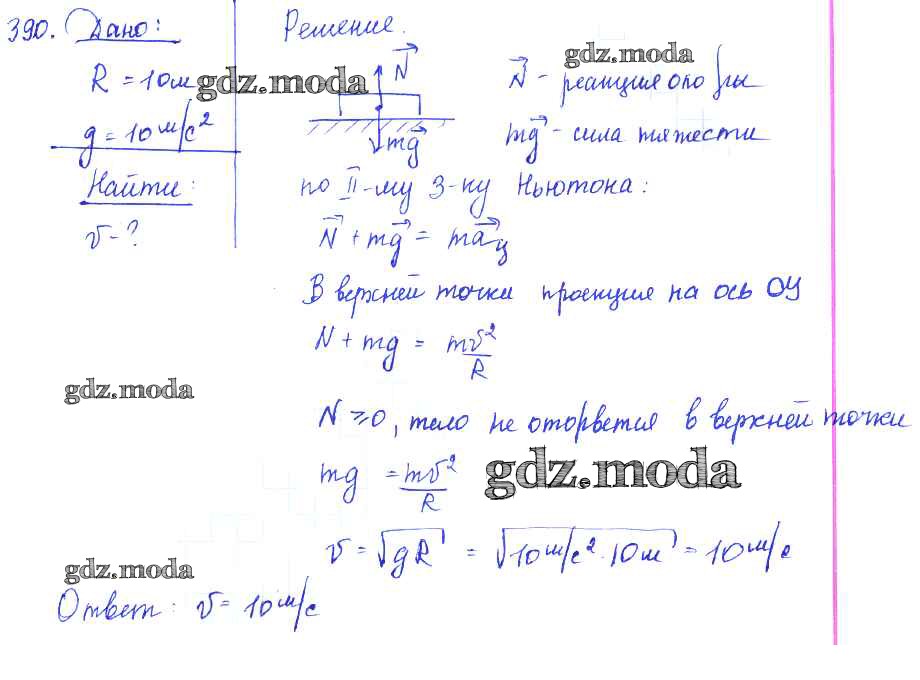 390. Дано: Решение.
R = 10м
gdz.moda
N
gdz.moda
N - реакция опоры
g = 10 м/с²
mg
mg - сила тяжести
Найти:
по II-му З-ну Ньютона:
v - ?
N + mg = maц
В верхней точки проекция на ось ОУ
N + mg = mv²/R
gdz.moda
N ≥ 0, тело не оторвется в верхней точки
mg = mv²/R
gdz.moda
v = √gR = √10 м/с² · 10м = 10 м/с
gdz.moda
Ответ: v = 10 м/с